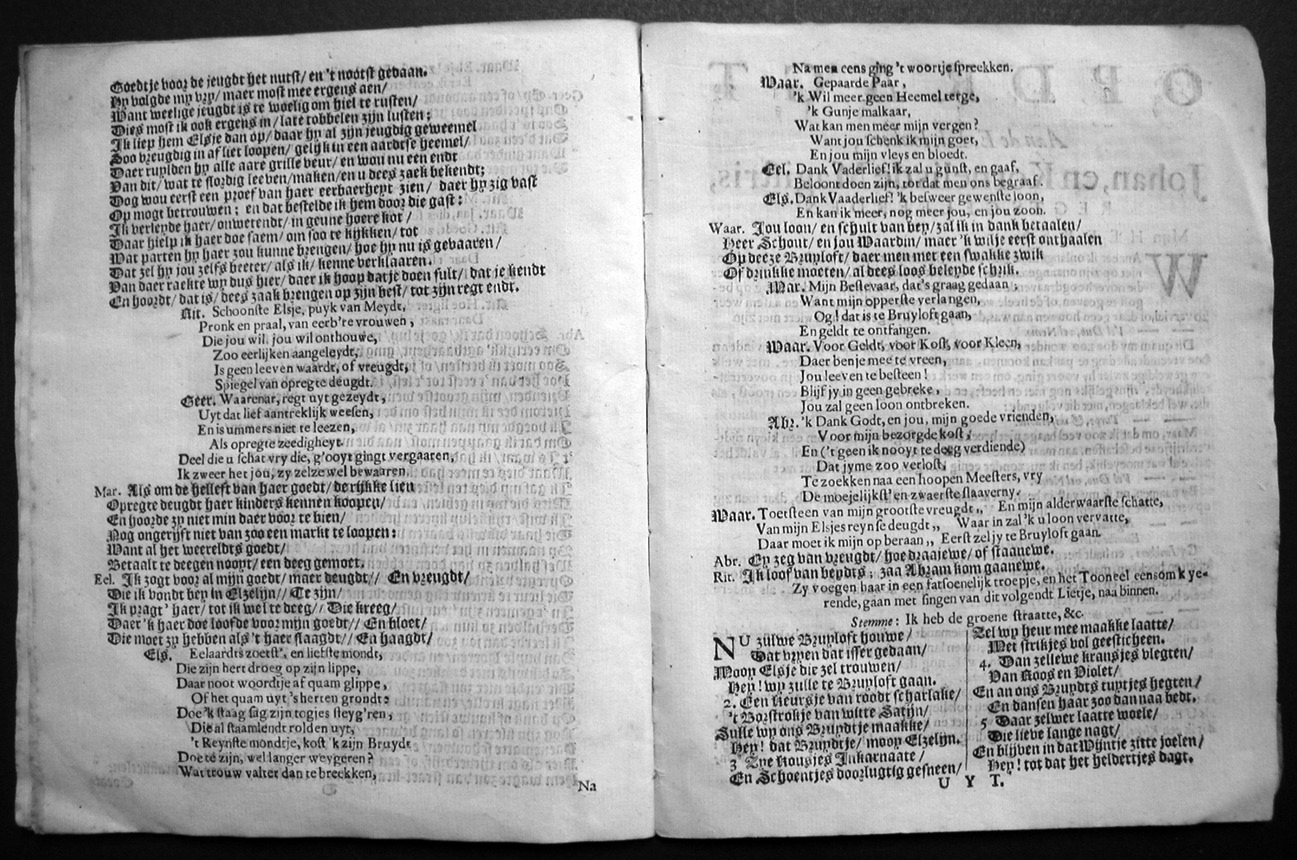 Goedt je voor de jeugdt het nutst/ en 't nootst gedaan.
Hy volgde my vry/ maer most mee ergens aen/
Want weelige jeugdt is te woelig om hiel te rusten/
Dies most ik ook ergens in/ late tobbelen zijn lusten;
Ik liep hem Elsje dan op/ daar hy al zijn jeugdig geweemel
Soo vreugdig in af liet loopen/ gelijk in een aardtse heemel/
Daer ruylden hy alle aare grille veur/ en wou nu een endt
Van dit/ wat te slordig leeven/ maken/ en u dees zaek bekendt;
Dog wou eerst een proef van haer eerbaerheyt zien/ daer hy zig vast
Op mogt betrouwen; en dat bestelde ik hem door die gast:
Ik verleyde haer/ onwetendt/ in geune hoere kot/
Daar hielp ik haer doe saem/ om soo te kijkken/ tot
Wat parten hy haer zou kunne brengen/ hoe hy nu is gevaaren/
Dat zel hy jou zelfs beeter/ als ik/ kenne verklaaren.
Van daer raekte wy dus hier/ daer ik hoop dat je doen sult/ dat je kendt
En hoordt/ dat is/ dees zaak brengen op zijn best/ tot zijn regt endt.
Rit. Schoonste Elsje, puyk van Meydt,
Pronk en praal, van eerb're vrouwen,
Die jou wil, jou wil onthouwe,
Zoo eerlijken aangeleydt,
Is geen leeven waardt, of vreugdt,
Spiegel van opregte deugdt.
Geer. Waarenar, regt uyt gezeydt,
Uyt dat lief aantreklijk weesen,
En is ummers niet te leezen,
Als opregte zeedigheyt.
Deel die u schat vry die, g'ooyt gingt vergaaren,
Ik zweer het jou, zy zelze wel bewaaren.
Mar. Als om de hellest van haer goedt/ de rijkke lien
Opregte deugdt haer kinders kennen koopen/
En hoorde zy niet min daer voor te bien/
Nog ongerijft niet van zoo een markt te loopen:
Want al het weereldts goedt/
Betaalt te deegen noyt/ een deeg gemoet.
Eel. Ik zogt voor al mijn goedt/ maer deugdt// En vreugdt/
Die ik vondt bey in Elzelijn// Te zijn/
Ik pragt' haer/ tot ik wel te deeg// Die kreeg/
Daer 'k haer doe loofde voor mijn goedt// En bloet/
Die moet zy hebben als 't haer slaagdt// En haagdt/
Els. Eelaardts zoetst', en liefste mondt,
Die zijn hert droeg op zijn lippe,
Daar noot woordtje af quam glippe,
Of het quam uyt 's herten grondt:
Doe 'k staag sag zijn togjes steyg'ren,
Die al staamlendt rolden uyt,
't Reynste mondtje, kost 'k zijn Bruydt
Doe te zijn, wel langer weygeren?
Wat trouw valter dan te breekken,
Na
Na men eens ging 't woortje spreekken.
Waar. Gepaarde Paar,
'k Wil meer geen Heemel terge,
'k Gunje malkaar,
Wat kan men meer mijn vergen?
Want jou schenk ik mijn goet,
En jou mijn vleys en bloedt.
Eel. Dank Vaderlief! ik zal u gunst, en gaaf,
Beloont doen zijn, tot dat men ons begraaf.
Els. Dank Vaaderlief! 'k besweer gewenste loon,
En kan ik meer, nog meer jou, en jou zoon.
Waar. Jou loon/ en schult van bey/ zal ik in dank betaalen/
Heer Schout/ en jou Waardin/ maer 'k wil je eerst onthaalen
Op deeze Bruyloft/ daer men met een swakke zwik
Of drinkke moeten/ al dees loos beleyde schrik.
Mar. Mijn Bestevaar, dat's graag gedaan;
Want mijn opperste verlangen,
Og! dat is te Bruyloft gaan,
En geldt te ontfangen.
Waar. Voor Geldt, voor Kost, voor Kleen,
Daer ben je mee te vreen,
Jou leeven te besteen!
Blijf jy in geen gebreke,
Jou zal geen loon ontbreken.
Abr. 'k Dank Godt, en jou, mijn goede vrienden,
Voor mijn bezorgde kost,
En ('t geen ik nooyt te deeg verdiende)
Dat jy me zoo verlost,
Te zoekken naa een hoopen Meesters, vry
De moejelijkst' en zwaerste slaaverny.
Waar. Toetsteen van mijn grootste vreugdt,, En mijn alderwaarste schatte,
Van mijn Elsjes reynse deugdt,, Waar in zal 'k u loon vervatte,
Daar moet ik mijn op beraan,, Eerst zel jy te Bruyloft gaan.
Abr. Ey zeg van vreugdt/ hoe draajewe/ of staanewe.
Rit. Ik loof van beydts; zaa Abram kom gaanewe.
Zy voegen haar in een fatsoenelijk troepje, en het Tooneel eens omk ye-
rende, gaan met singen van dit volgendt Lietje, naa binnen.
Stemme: Ik heb de groene straatte, &c.
NU zulwe Bruyloft houwe/
Dat vryen dat isser gedaan/
Mooy Elsje die zel trouwen/
Hey! wy zulle te Bruyloft gaan.
2. Een keursje van roodt scharlake/
't Borstrokje van witte Satijn/
Sulle wy ons Bruydtje maakke/
Hey! dat Bruydtje/ mooy Elzelijn.
3 Zye Kousjes Inkarnaate/
En Schoentjes doorlugtig gesneen/
Zel wy heur mee maakke laatte/
Met strikjes vol geesticheen.
4. Dan zellewe kransjes vlegten/
Van Roos en Violet/
En an ons Bruydts tuytjes hegten/
En dansen haar zoo dan naa bedt.
5 Daar zelwer laatte woele/
Die lieve lange nagt/
En blijven in dat Wijntje zitte joelen/
Hey! tot dat het heldertjes dagt.
U Y T.